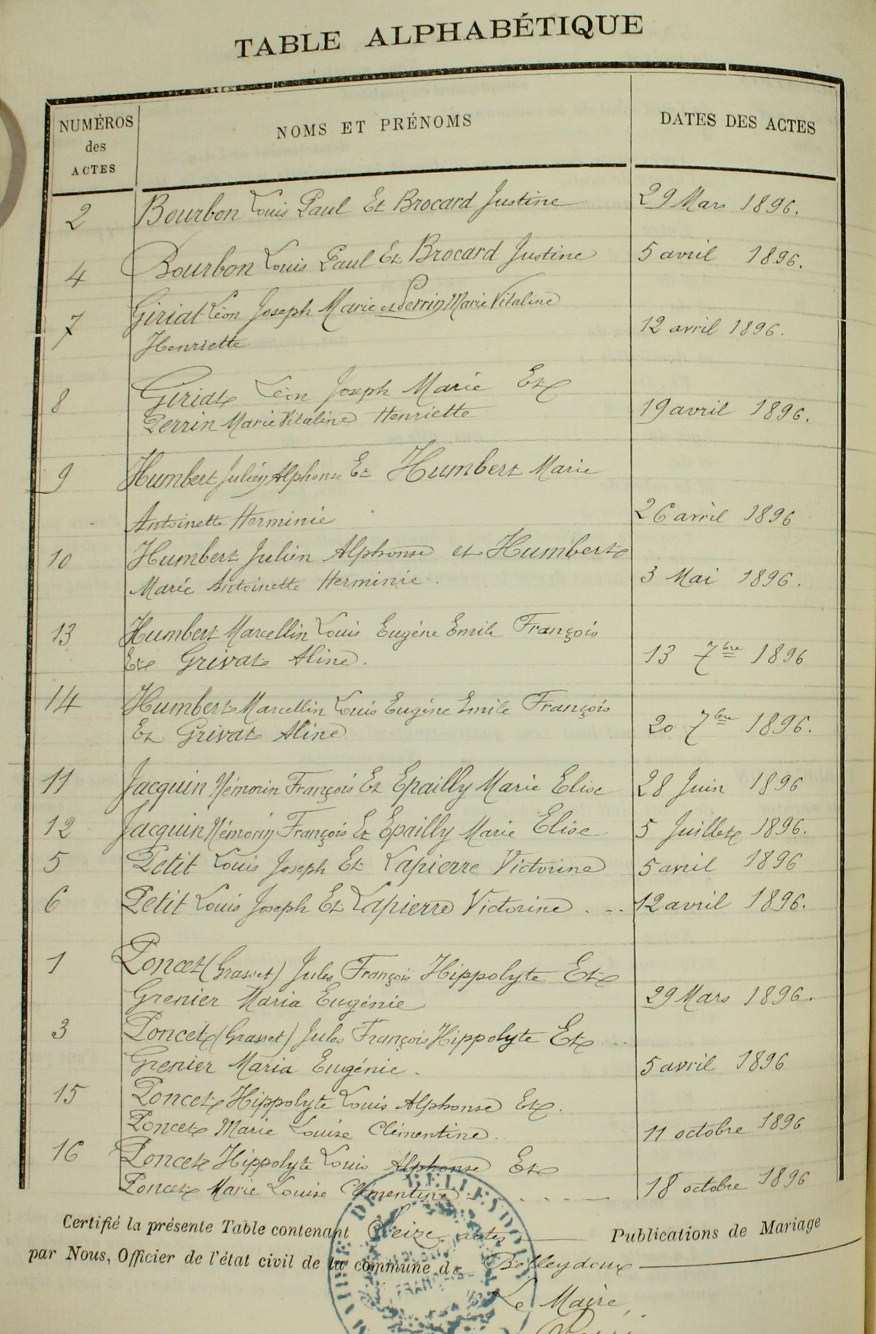 TABLE ALPHABÉTIQUE
NUMÉROS des ACTES NOMS ET PRÉNOMS DATES DES ACTES
2 Bourbon Louis Paul Et Brocard Justine 29 Mars 1896.
4 Bourbon Louis Paul Et Brocard Justine 5 avril 1896.
7 Giriat Léon Joseph Marie et Perrin Marie Vitaline
Henriette 12 avril 1896.
8 Giriat Léon Joseph Marie Et
Perrin Marie Vitaline Henriette 19 avril 1896.
9 Humbert Julien Alphonse Et Humbert Marie
Antoinette Herminie 26 avril 1896
10 Humbert Julien Alphonse et Humbert
Marie Antoinette Herminie. 3 Mai 1896.
13 Humbert Marcellin Louis Eugéne Emile François
Et Grivat Aline. 13 7bre 1896
14 Humbert Marcellin Louis Eugéne Emile François
Et Grivat Aline 20 7bre 1896.
11 Jacquin Némorin François Et Epailly Marie Elise 28 Juin 1896
12 Jacquin Némorin François Et Epailly Marie Elise 5 Juillet 1896.
5 Petit Louis Joseph Et Lapierre Victorine 5 avril 1896
6 Petit Louis Joseph Et Lapierre Victorine 12 avril 1896.
1 Poncet (Grasset) Jules François Hippolyte Et
Grenier Maria Eugénie 29 Mars 1896.
3 Poncet (Grasset) Jules François Hippolyte Et
Grenier Maria Eugénie. 5 avril 1896
15 Poncet Hippolyte Louis Alphonse Et.
Poncet Marie Louise Clémentine. 11 octobre 1896
16 Poncet Hippolyte Louis Alphonse Et
Poncet Marie Louise Clémentine 18 octobre 1896
Certifié la présente Table contenant Seize actes Publications de Mariage
par Nous, Officier de l'état civil de la commune de Belleydoux
Le Maire,
MAIRIE DE BELLEYDOUX